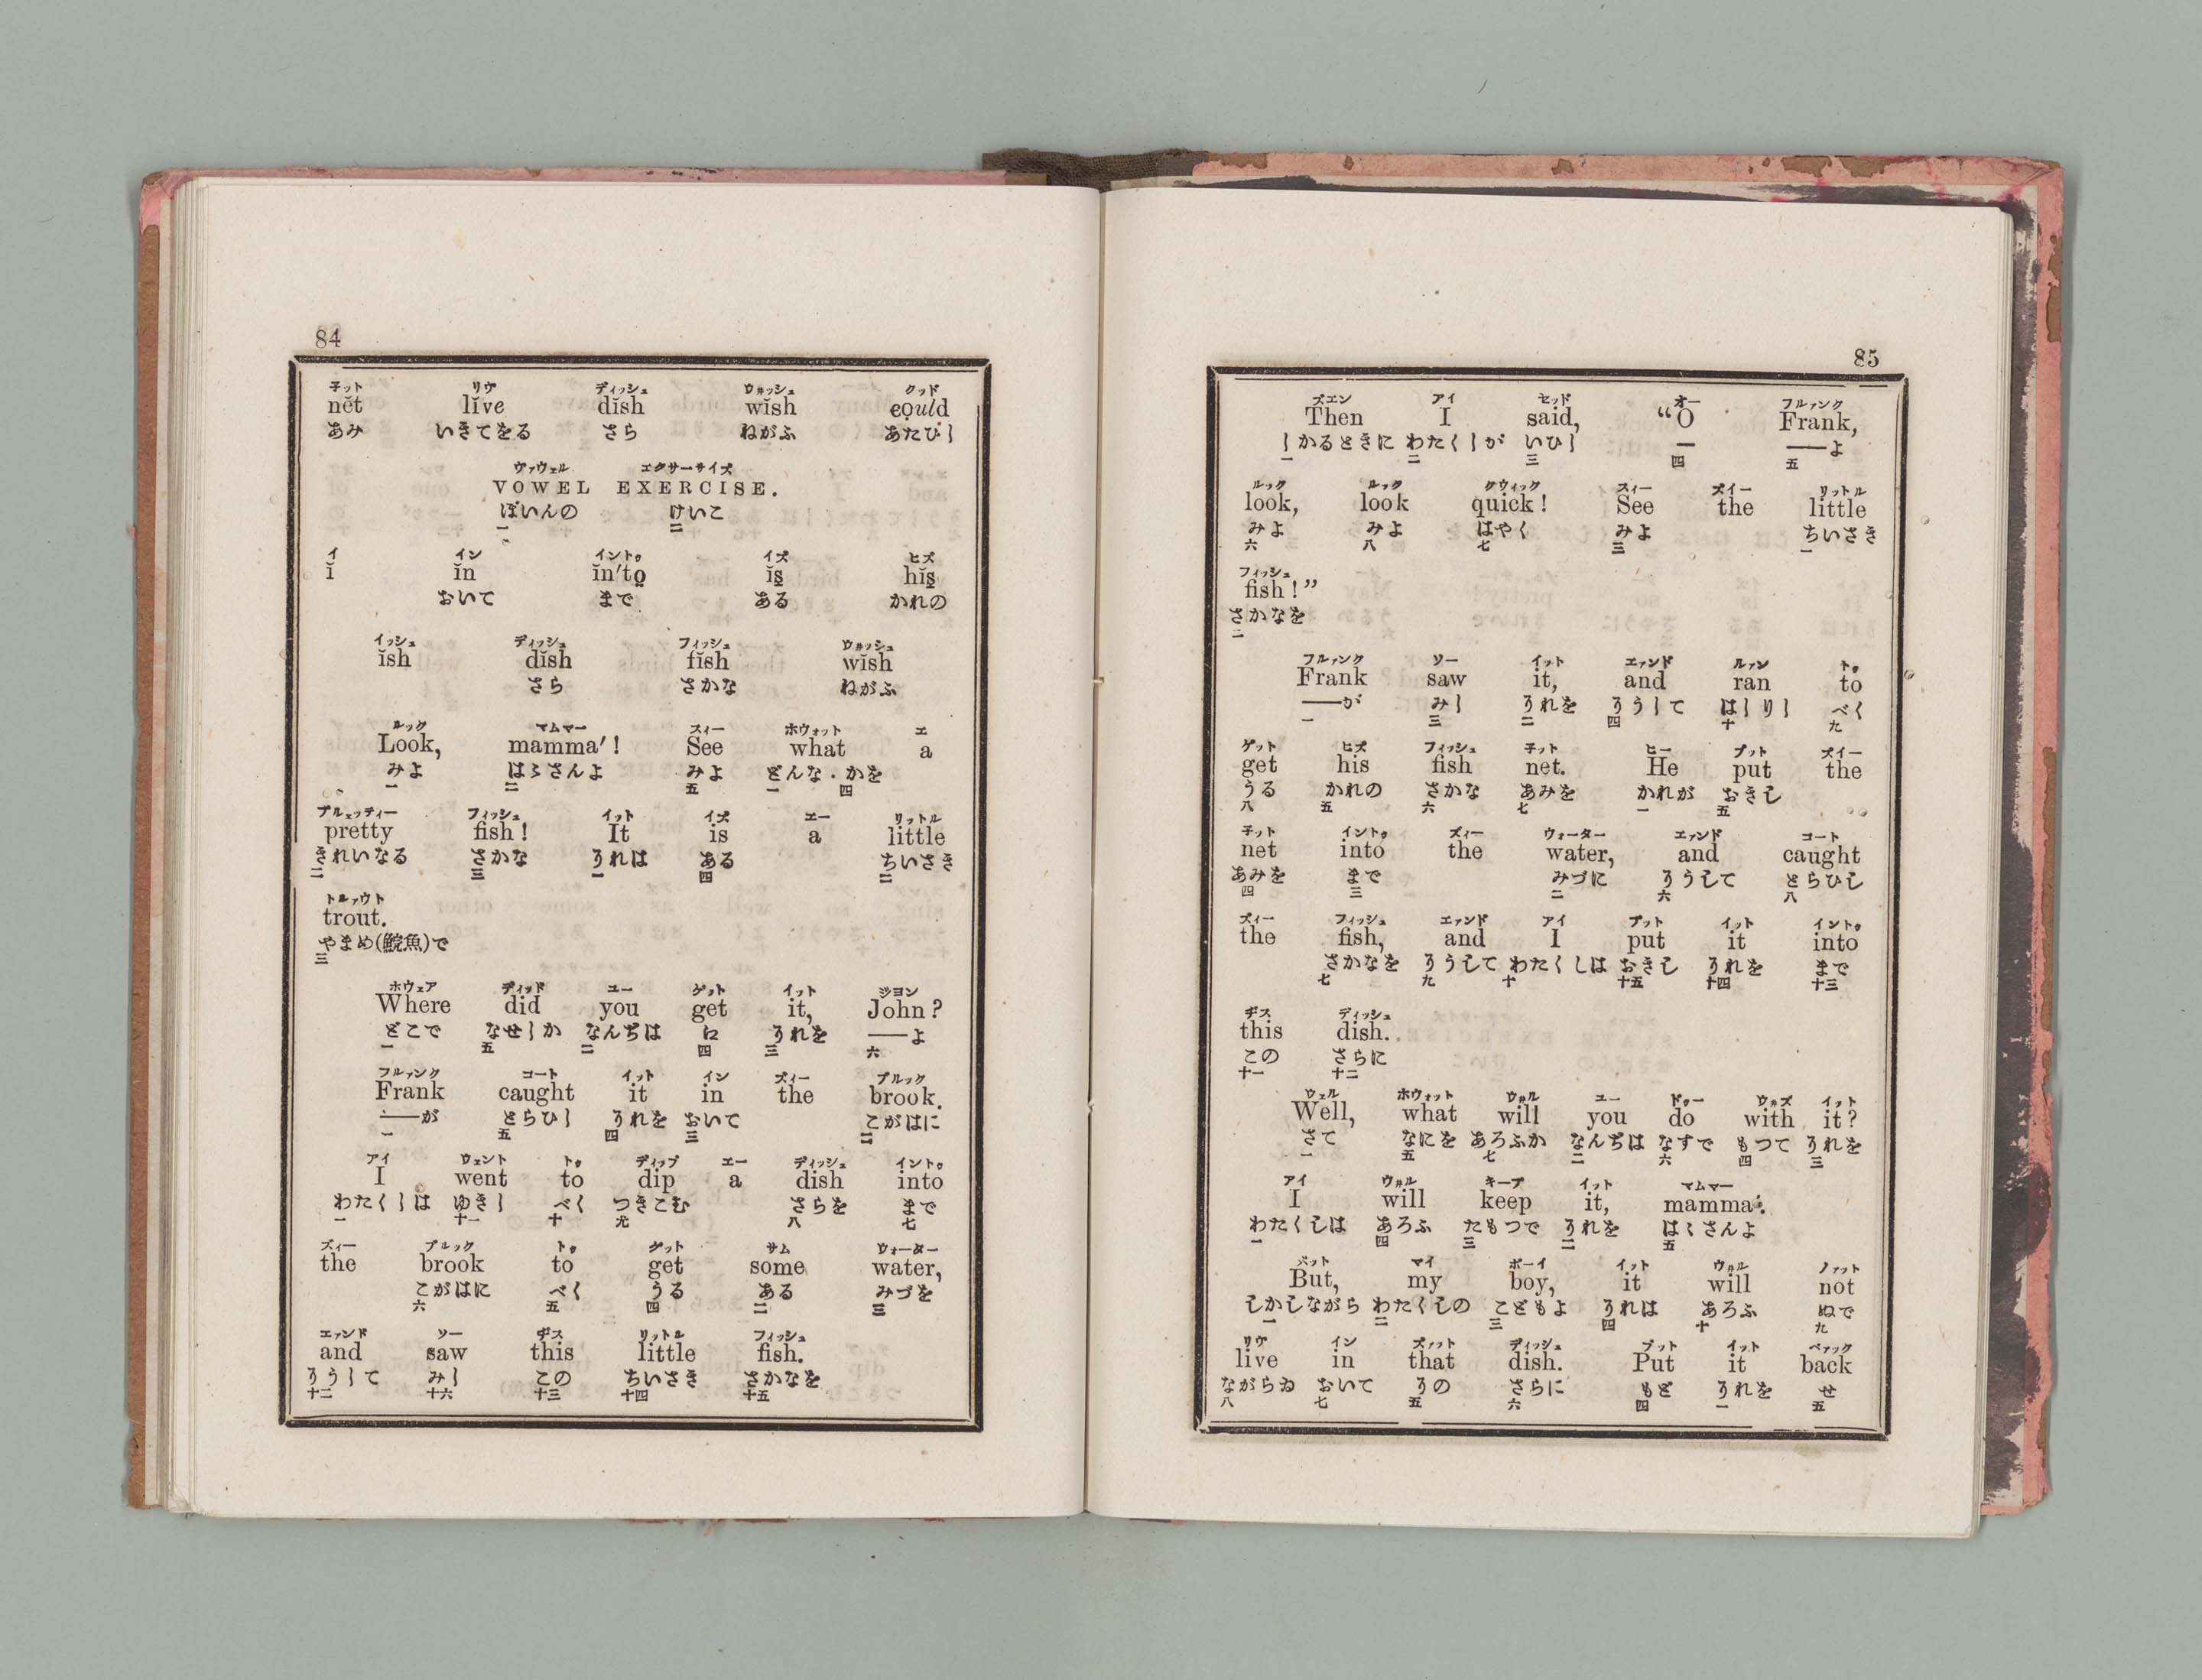 84
子ット リヴ ディッシュ ウ井ッシュ クッド
nĕt lĭve dĭsh wĭsh eould
あみ いきてをる さら ねがふ あたひし
ヴァウェル エクサーサイズ
VOWEL EXERCISE.
ぼいんの けいこ
一 二
イ イン イントゥ イズ ヒズ
ĭ ĭn ĭn'to ĭs hĭs
おいて まで ある かれの
イッシュ ディッシュ フィッシュ ウ井ッシュ
ĭsh dĭsh fĭsh wĭsh
さら さかな ねがふ
ルック マムマー スィー ホウォット エ
Look, mamma'! See what a
みよ はゝさんよ みよ どんな・かを
一 二 五 一 四
プルェッティー フィッシュ イット イズ エー リットル
pretty fish! It is a little
きれいなる さかな それは ある ちいさき
二 三 一 四 二
トルァウト
trout.
やまめ(鯇魚)で
三
ホウェア ディッド ユー ゲット イット ジヨン
Where did you get it, John?
どこで なせしか なんぢは に それを ――よ
一 五 二 四 三 六
フルァンク コート イット イン ズィー ブルック
Frank caught it in the brook.
――が とらひし それを おいて こがはに
一 五 四 三 二
アイ ウェント トゥ ディップ エー ディッシュ イントゥ
I went to dip a dish into
わたくしは ゆきし べく つきこむ さらを まで
一 十一 十 九 八 七
ズィー ブルック トゥ ゲット サム ウォーター
the brook to get some water,
こがはに べく うる ある みづを
六 五 四 二 三
エァンド ソー ヂス リットル フィッシュ
and saw this little fish.
そうして みし この ちいさき さかなを
十二 十六 十三 十四 十五
85
ズエン アイ セッド オー フルァンク
Then I said, “O Frank,
しかるときに わたくしが いひし ― ――よ
一 二 三 四 五
ルック ルック クウィック スィー ズイー リットル
look, look quick! See the little
みよ みよ はやく みよ ちいさき
六 八 七 三 一
フィッシュ
fish!”
さかなを
二
フルァンク ソー イット エァンド ルァン トゥ
Frank saw it, and ran to
――が みし それを そうして はしりし べく
一 三 二 四 十 九
ゲット ヒズ フィッシュ 子ット ヒー プット ズイー
get his fish net. He put the
うる かれの さかな あみを かれが おきし
八 五 六 七 一 五
子ット イントゥ ズィー ウォーター エァンド コート
net into the water, and caught
あみを まで みづに そうして とらひし
四 三 二 六 八
ズィー フィッシュ エァンド アイ プット イット イントゥ
the fish, and I put it into
さかなを そうして わたくしは おきし それを まで
七 九 十 十五 十四 十三
ヂス ディッシュ
this dish.
この さらに
十一 十二
ウェル ホウォット ウ井ル ユー ドゥー ウ井ズ イット
Well, what will you do with it?
さて なにを あろふか なんぢは なすで もつて それを
一 五 七 二 六 四 三
アイ ウ井ル キープ イット マムマー
I will keep it, mamma'.
わたくしは あろふ たもつで それを はゝさんよ
一 四 三 二 五
バット マイ ボーイ イット ウ井ル ノァット
But, my boy, it will not
しかしながら わたくしの こどもよ それは あろふ ぬで
一 二 三 四 十 九
リヴ イン ズァット ディッシュ プット イット ベァック
live in that dish. Put it back
ながらゐ おいて その さらに もど それを せ
八 七 五 六 四 一 五